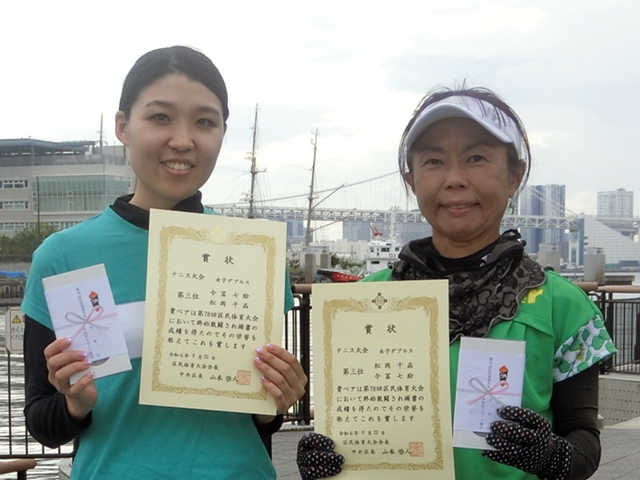 賞状
テニス大会 女子ダブルス
第三位 今冨七絵
松岡千晶
貴ペアは第78回区民体育大会
において終始敢闘され頭書の
成績を得たのでその栄誉を
称えてこれを賞します
令和6年9月22日
区民体育大会会長
中央区長 山本泰人
賞状
テニス大会 女子ダブルス
第三位 松岡千晶
今冨七絵
貴ペアは第78回区民体育大会
において終始敢闘され頭書の
成績を得たのでその栄誉を
称えてこれを賞します
令和6年9月22日
区民体育大会会長
中央区長 山本泰人